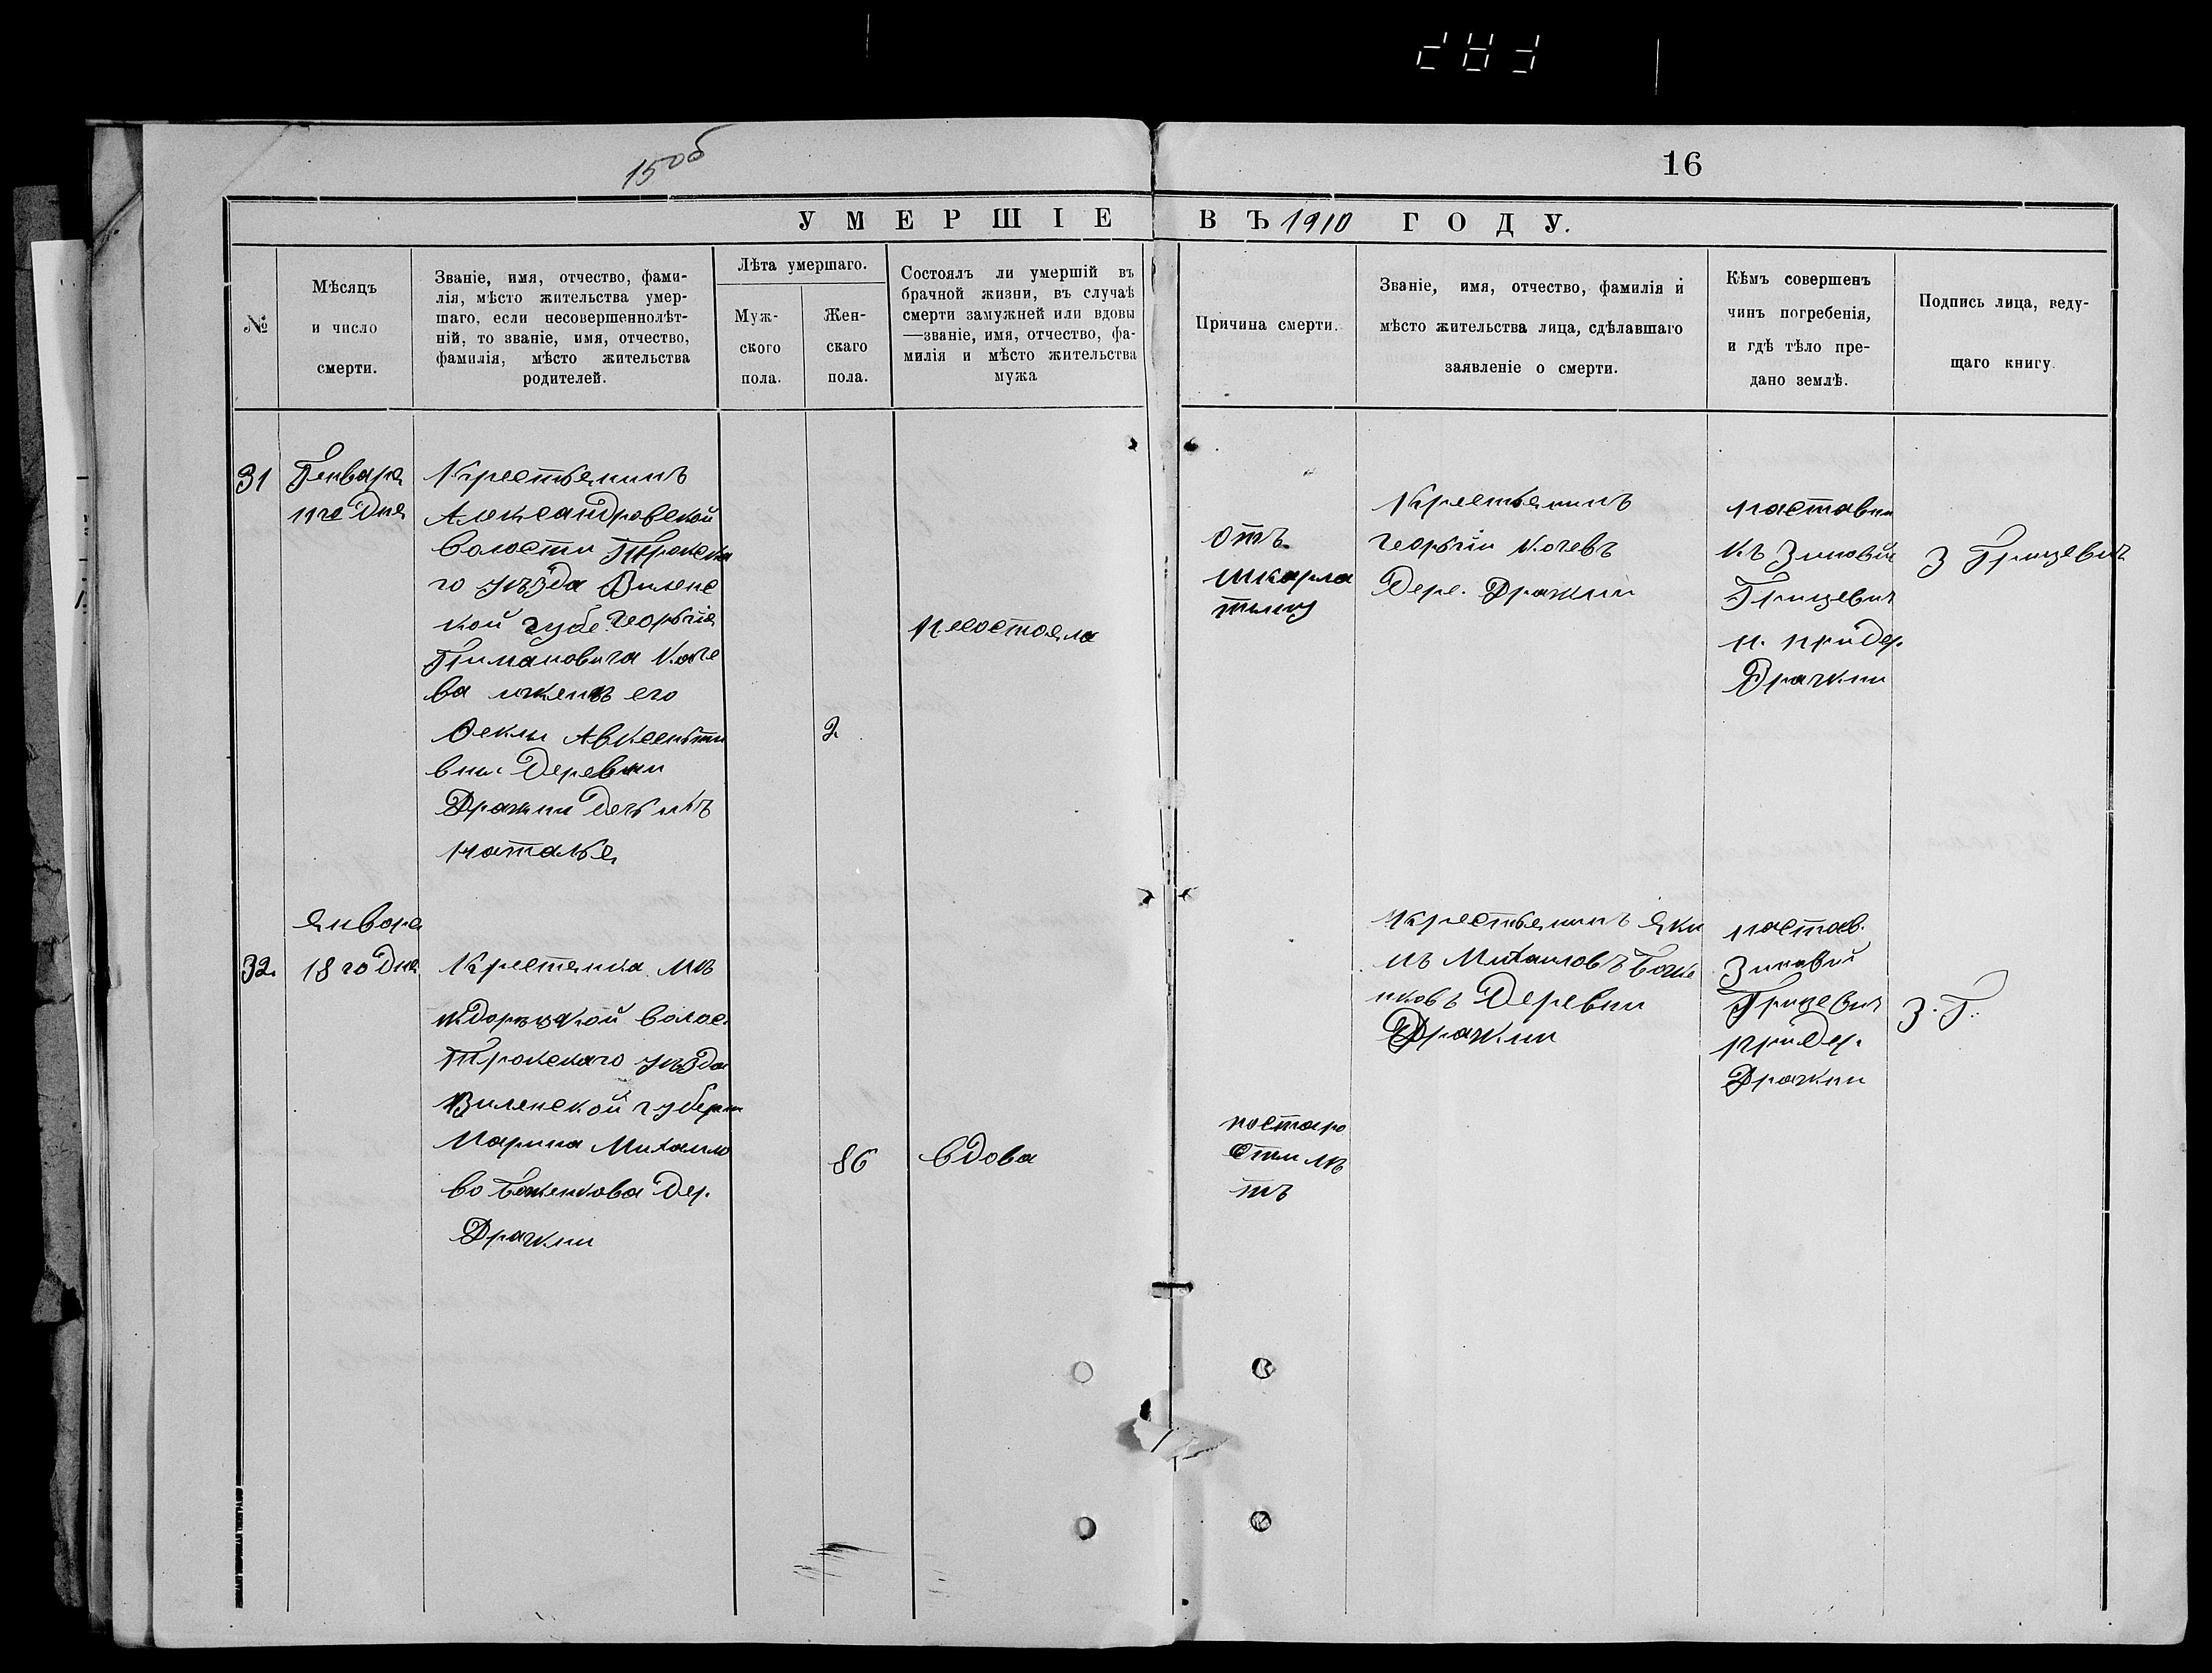 15об
16
УМЕРШІЕ ВЪ 1910 ГОДУ.
№
Мѣсяцъ
и число
смерти.
Званіе, имя, отчество, фами-
лія, мѣсто жительства умер-
шаго, если несовершеннолѣт-
ній, то званіе, имя, отчество,
фамилія, мѣсто жительства
родителей.
Лѣта умершаго.
Муж-
ского
пола.
Жен-
скаго
пола.
Состоялъ ли умершій въ
брачной жизни, въ случаѣ
смерти замужней или вдовы
—званіе, имя, отчество, фа-
милія и мѣсто жительства
мужа
Причина смерти.
Званіе, имя, отчество, фамилія и
мѣсто жительства лица, сдѣлавшаго
заявленіе о смерти.
Кѣмъ совершенъ
чинъ погребенія,
и гдѣ тѣло пре-
дано землѣ.
Подпись лица, веду-
щаго книгу
31
Генваря
11го Дня
Крестьянинъ
Александровской
Волости Трокска
го уѣзда Виленс
кой губе. Георгія
Коче
ва ижены его
Феклы Авксеньти
вны Деревни
Дражни Дочь ихъ
Наталья
2
Несостояла
отъ
шкарла
тыны
Крестьянинъ
Георгій Кочевъ
Дере. Дражни
наставни
къ Зиновій
Грицевич
н. при дер.
Дражни
З Грицевичъ
Января
32.
18 го Дня
Крестянка
волос.
Трокскаго уѣзда
Виленской губерн
Марина Михаило
во Баженкова Дер.
Дражни
86
Вдова
постаро
сти лѣ
тъ
Крестьянинъ Яки
мъ Михаиловъ Баже
нковъ Деревни
Дражни
настав.
Зиновій
Грицевич
при дер.
Дражни
З. Г.